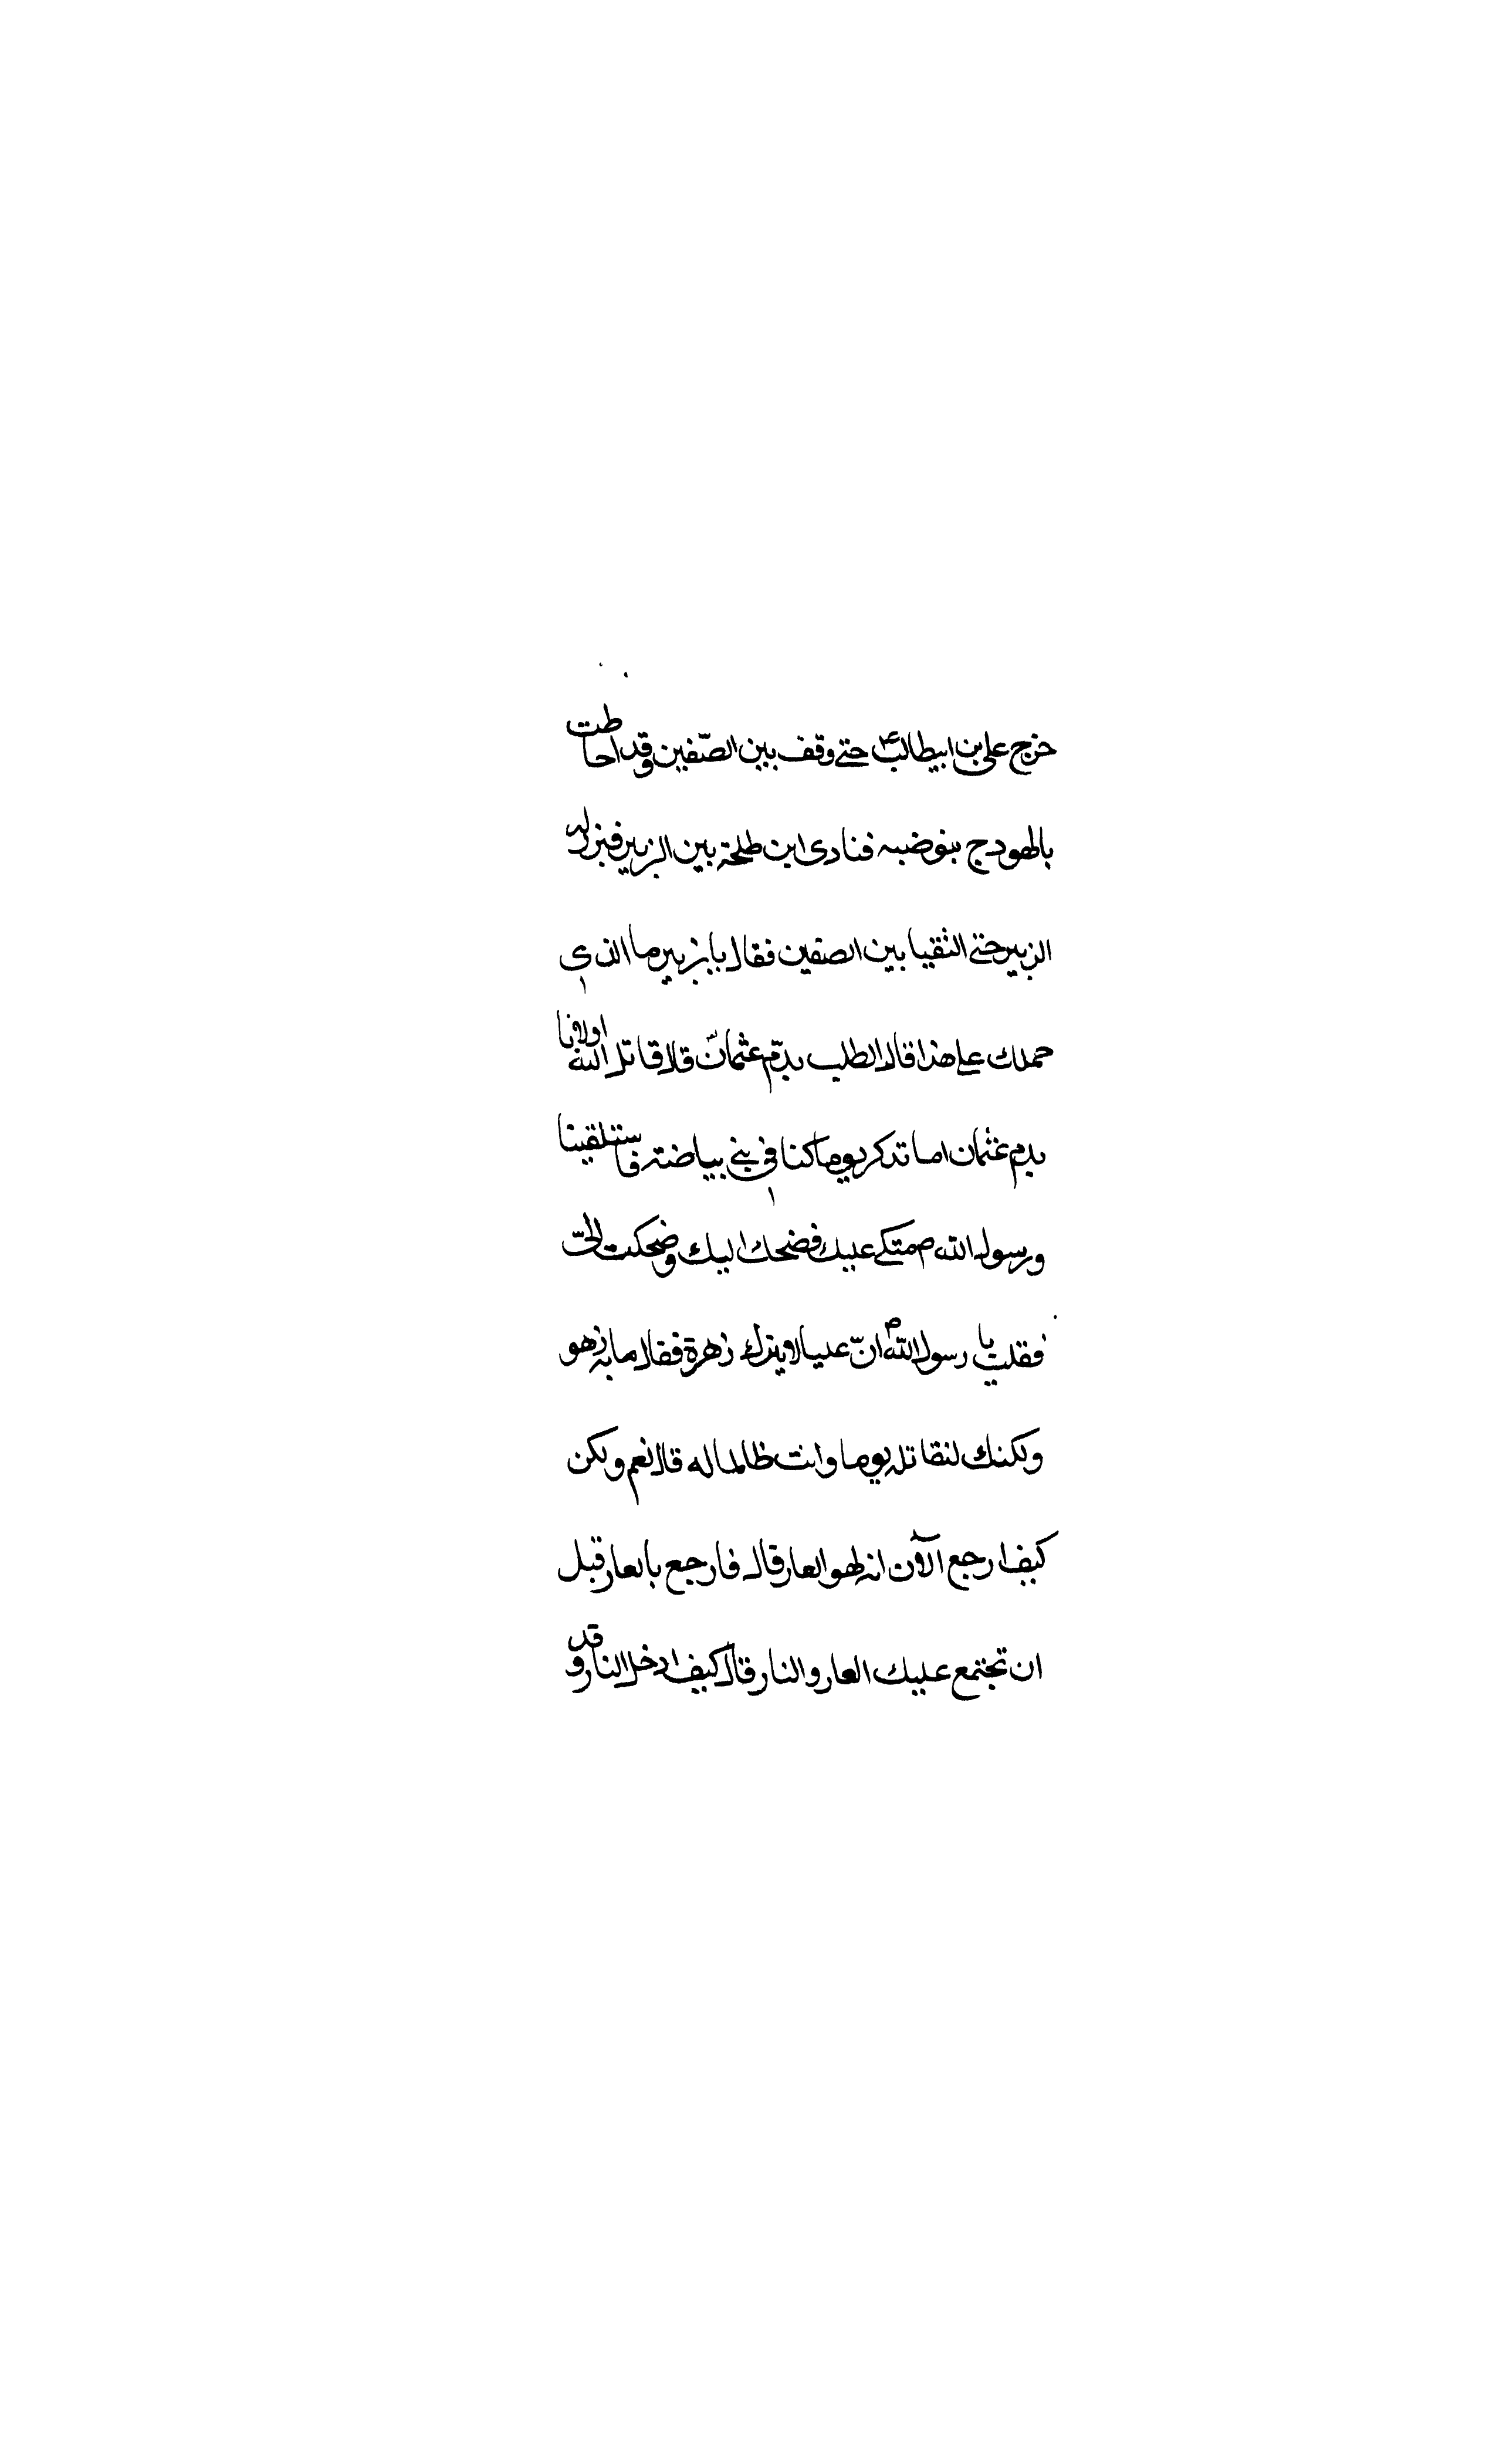 خرج علی بن ابیطالب ع حتی وقف بین الصّفین وقد احاطت
بالهودج بنوضبه فنادی این طلحة بین الزبیر فبزر له
الزبیر حتی التقیا بین الصفین فقال یا زبیر ما الذی
حملك علی هذا قال الطلب بدم عثمان قال قاتل الله اولانا
بدم عثمان اما تذکر یوما کنا فی بنی بیاضة فاستلقینا
ورسول الله ص متکی علیك فضحك الیك وضحکت الیّ
فقلت یا رسول الله ص انّ علیا لا یترك زهرة فقال ما به زهو
ولکنك لتقاتله یوما وانت ظالما له قال نعم ولکن
کیف ارجع الآن انه لهو العار قال فارجع بالعار قبل
ان تجتمع علیك العار والنار قال کیف ادخل النار وقد